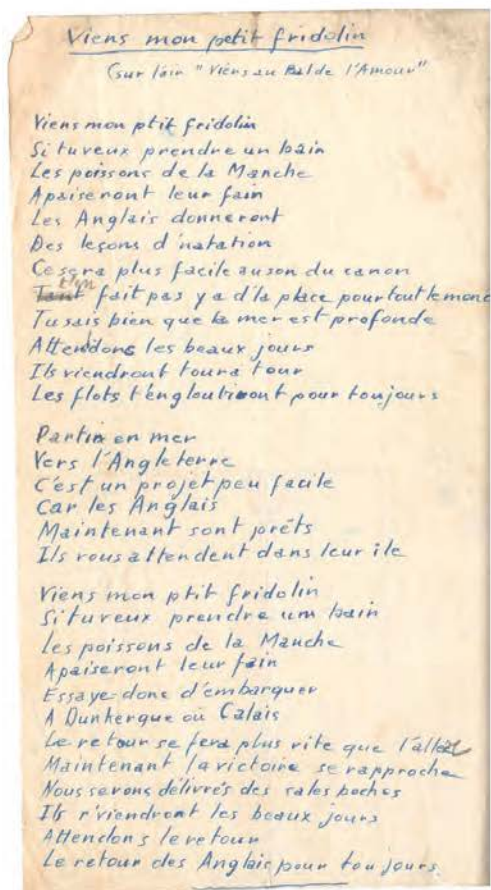 Viens mon petit fridolin
(sur l'air "Viens au Bal de l'Amour"
Viens mon ptit fridolin
Si tu veux prendre un bain
Les poissons de la Manche
Apaiseront leur fain
Les Anglais donneront
Des leçons d'natation
Ce sera plus facile au son du canon
t'en fait pas y a d'la place pour tout le monde
Tu sais bien que la mer est profonde
Attendons les beaux jours
Ils viendront tour a tour
Les flots t'engloutiront pour toujours
Partir en mer
Vers l'Angleterre
C'est un projet peu facile
Car les Anglais
Maintenant sont prêts
Ils vous attendent dans leur île
Viens mon ptit fridolin
Si tu veux prendre un bain
Les poissons de la Manche
Apaiseront leur fain
Essaye donc d'embarquer
A Dunkerque ou Calais
Le retour se fera plus vite que l'aller
Maintenant la victoire se rapproche
Nous serons délivrés des sales boches
Ils r'viendront les beaux jours
Attendons le retour
Le retour des Anglais pour toujours